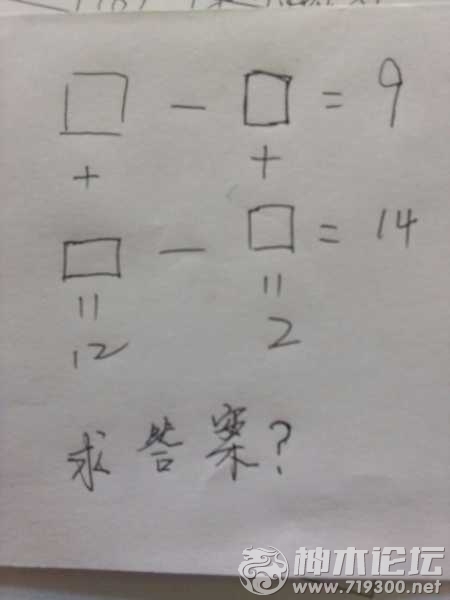 □ - □ = 9
+ +
□ - □ = 14
= =
12 2
求答案?
神木论坛
www.719300.net